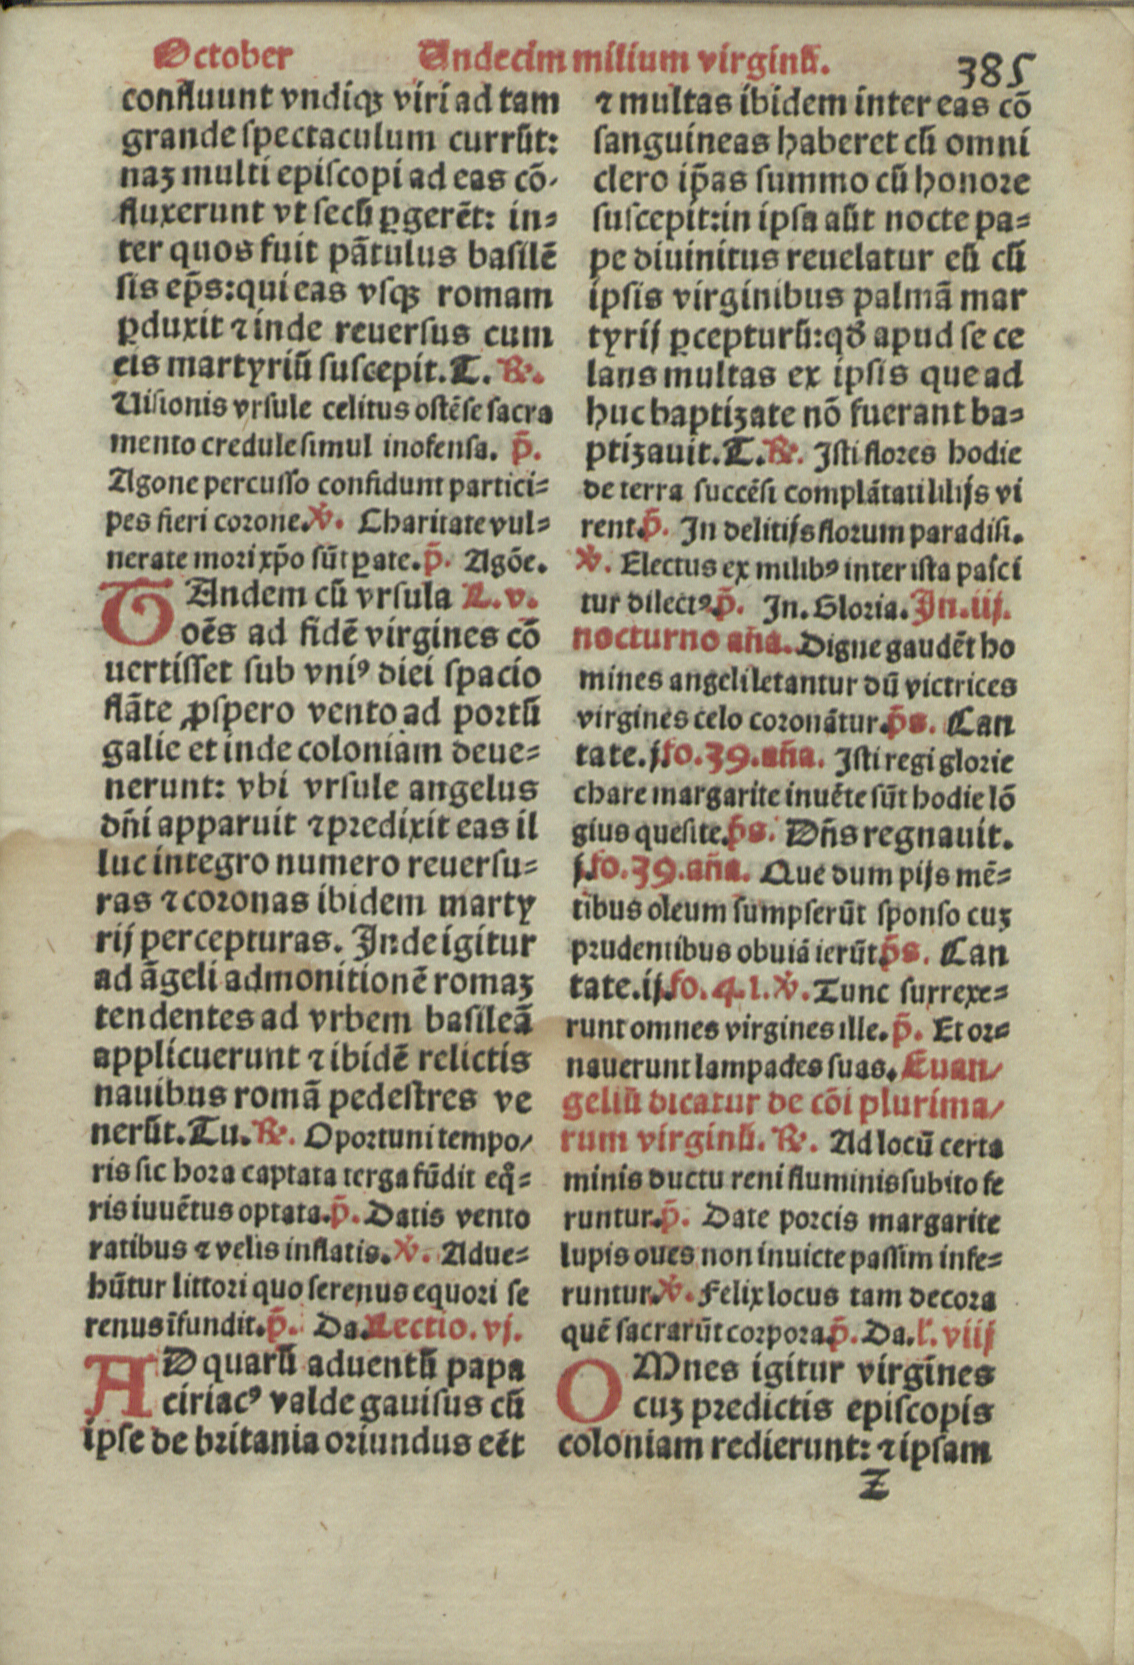 October Undecim milium virginū. 385
confluunt vndiqꝫ viri ad tam
grande spectaculum currūt:
naꝫ multi episcopi ad eas cō-
fluxerunt vt secū ꝑgerēt: in-
ter quos fuit pātulus basilē
sis ep̄s: qui eas vsqꝫ romam
ꝑduxit ⁊ inde reuersus cum
eis martyriū suscepit. T. ℟.
Uisionis vrsule celitus ostēse sacra
mento credule simul inofensa. p̄.
Agone percusso confidunt partici-
pes fieri corone. ℣. Charitate vul-
nerate mori xp̄o sūt ꝑate. p̄. Agōe.
TAndem cū vrsula L. v.
oēs ad fidē virgines cō
uertisset sub vniꝰ diei spacio
flāte ꝓspero vento ad portū
galie et inde coloniam deue-
nerunt: vbi vrsule angelus
dn̄i apparuit ⁊ predixit eas il
luc integro numero reuersu-
ras ⁊ coronas ibidem marty
rij percepturas. Inde igitur
ad āgeli admonitionē romaꝫ
tendentes ad vrbem basileā
applicuerunt ⁊ ibidē relictis
nauibus romā pedestres ve
nerūt. Tu. ℟. Oportuni tempo/
ris sic hora captata terga fūdit eq̄-
ris iuuētus optata. p̄. Datis vento
ratibus ⁊ velis inflatis. ℣. Adue-
hūtur littori quo serenus equori se
renus īfundit. p̄. Da. Lectio. vj.
AD quarū aduentū papa
ciriacꝰ valde gauisus cū
ipse de britania oriundus eēt
⁊ multas ibidem inter eas cō
sanguineas haberet cū omni
clero ip̄as summo cū honore
suscepit: in ipsa aūt nocte pa-
pe diuinitus reuelatur eū cū
ipsis virginibus palmā mar
tyrij ꝑcepturū: qđ apud se ce
lans multas ex ipsis que ad
huc baptizate nō fuerant ba-
ptizauit. T. ℟. Isti flores hodie
de terra succēsi complātati lilijs vi
rent. p̄. In delitijs florum paradisi.
℣. Electus ex milibꝰ inter ista pasci
tur dilectꝰ p̄. In. Gloria. In. iij.
nocturno añā. Digne gaudēt ho
mines angeli letantur dū victrices
virgines celo coronātur. p̄s. Can
tate. j. fo. 39. añā. Isti regi glorie
chare margarite inuēte sūt hodie lō
gius quesite. p̄s. Dn̄s regnauit.
j. fo. 39. añā. Que dum pijs mē-
tibus oleum sumpserūt sponso cuꝫ
prudentibus obuiā ierūt p̄s. Can
tate. ij. fo. 41. ℣. Tunc surrexe-
runt omnes virgines ille. p̄. Et or-
nauerunt lampades suas. Euan/
geliū dicatur de cōi plurima/
rum virginū. ℟. Ad locū certa
minis ductu reni fluminis subito fe
runtur. p̄. Date porcis margarite
lupis oues non inuicte passim infe-
runtur. ℣. Felix locus tam decora
quē sacrarūt corpora p̄. Da. l'. viij
OMnes igitur virgines
cuꝫ predictis episcopis
coloniam redierunt: ⁊ ipsam
Z